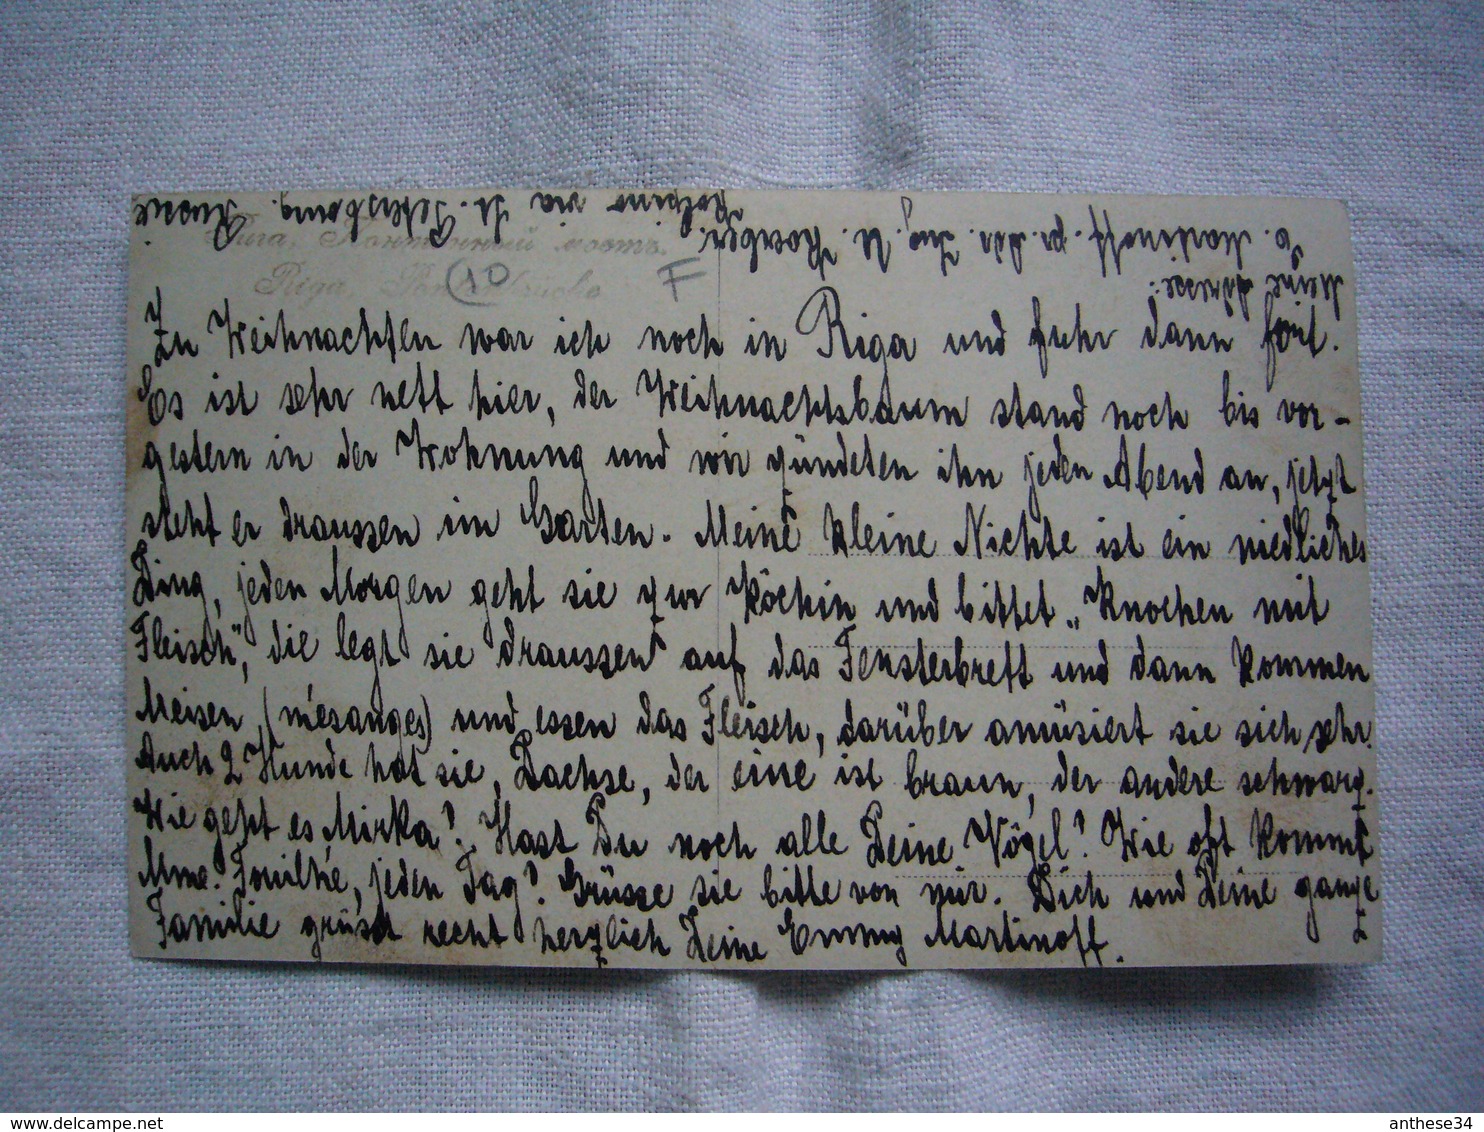 Meine Adresse:
E. Martinoff. pr. Adr. Ing. A.
Kolpino via St. Petersbourg. Russie.
Рига, Понтонный мостъ.
Riga, Pontonbrücke
(10
F
Zu Weihnachten war ich noch in Riga und fuhr dann fort.
Es ist sehr nett hier, der Weihnachtsbaum stand noch bis vor-
gestern in der Wohnung und wir zündeten ihn jeden Abend an, jetzt
steht er draussen im Garten. Meine kleine Nichte ist ein niedliches
Ding, jeden Morgen geht sie zur Köchin und bittet „Knochen mit
Fleisch", die legt sie draussen auf das Fensterbrett und dann kommen
Meisen (mésanges) und essen das Fleisch, darüber amüsiert sie sich sehr.
Auch 2 Hunde hat sie, Dachse, der eine ist braun, der andere schwarz.
Wie geht es Mirka? Hast Du noch alle Deine Vögel? Wie oft kommt
Mme. Fouilhé, jeden Tag? Grüsse sie bitte von mir. Dich und Deine ganze
Familie grüsst recht herzlich Deine Emmy Martinoff.
anthese34